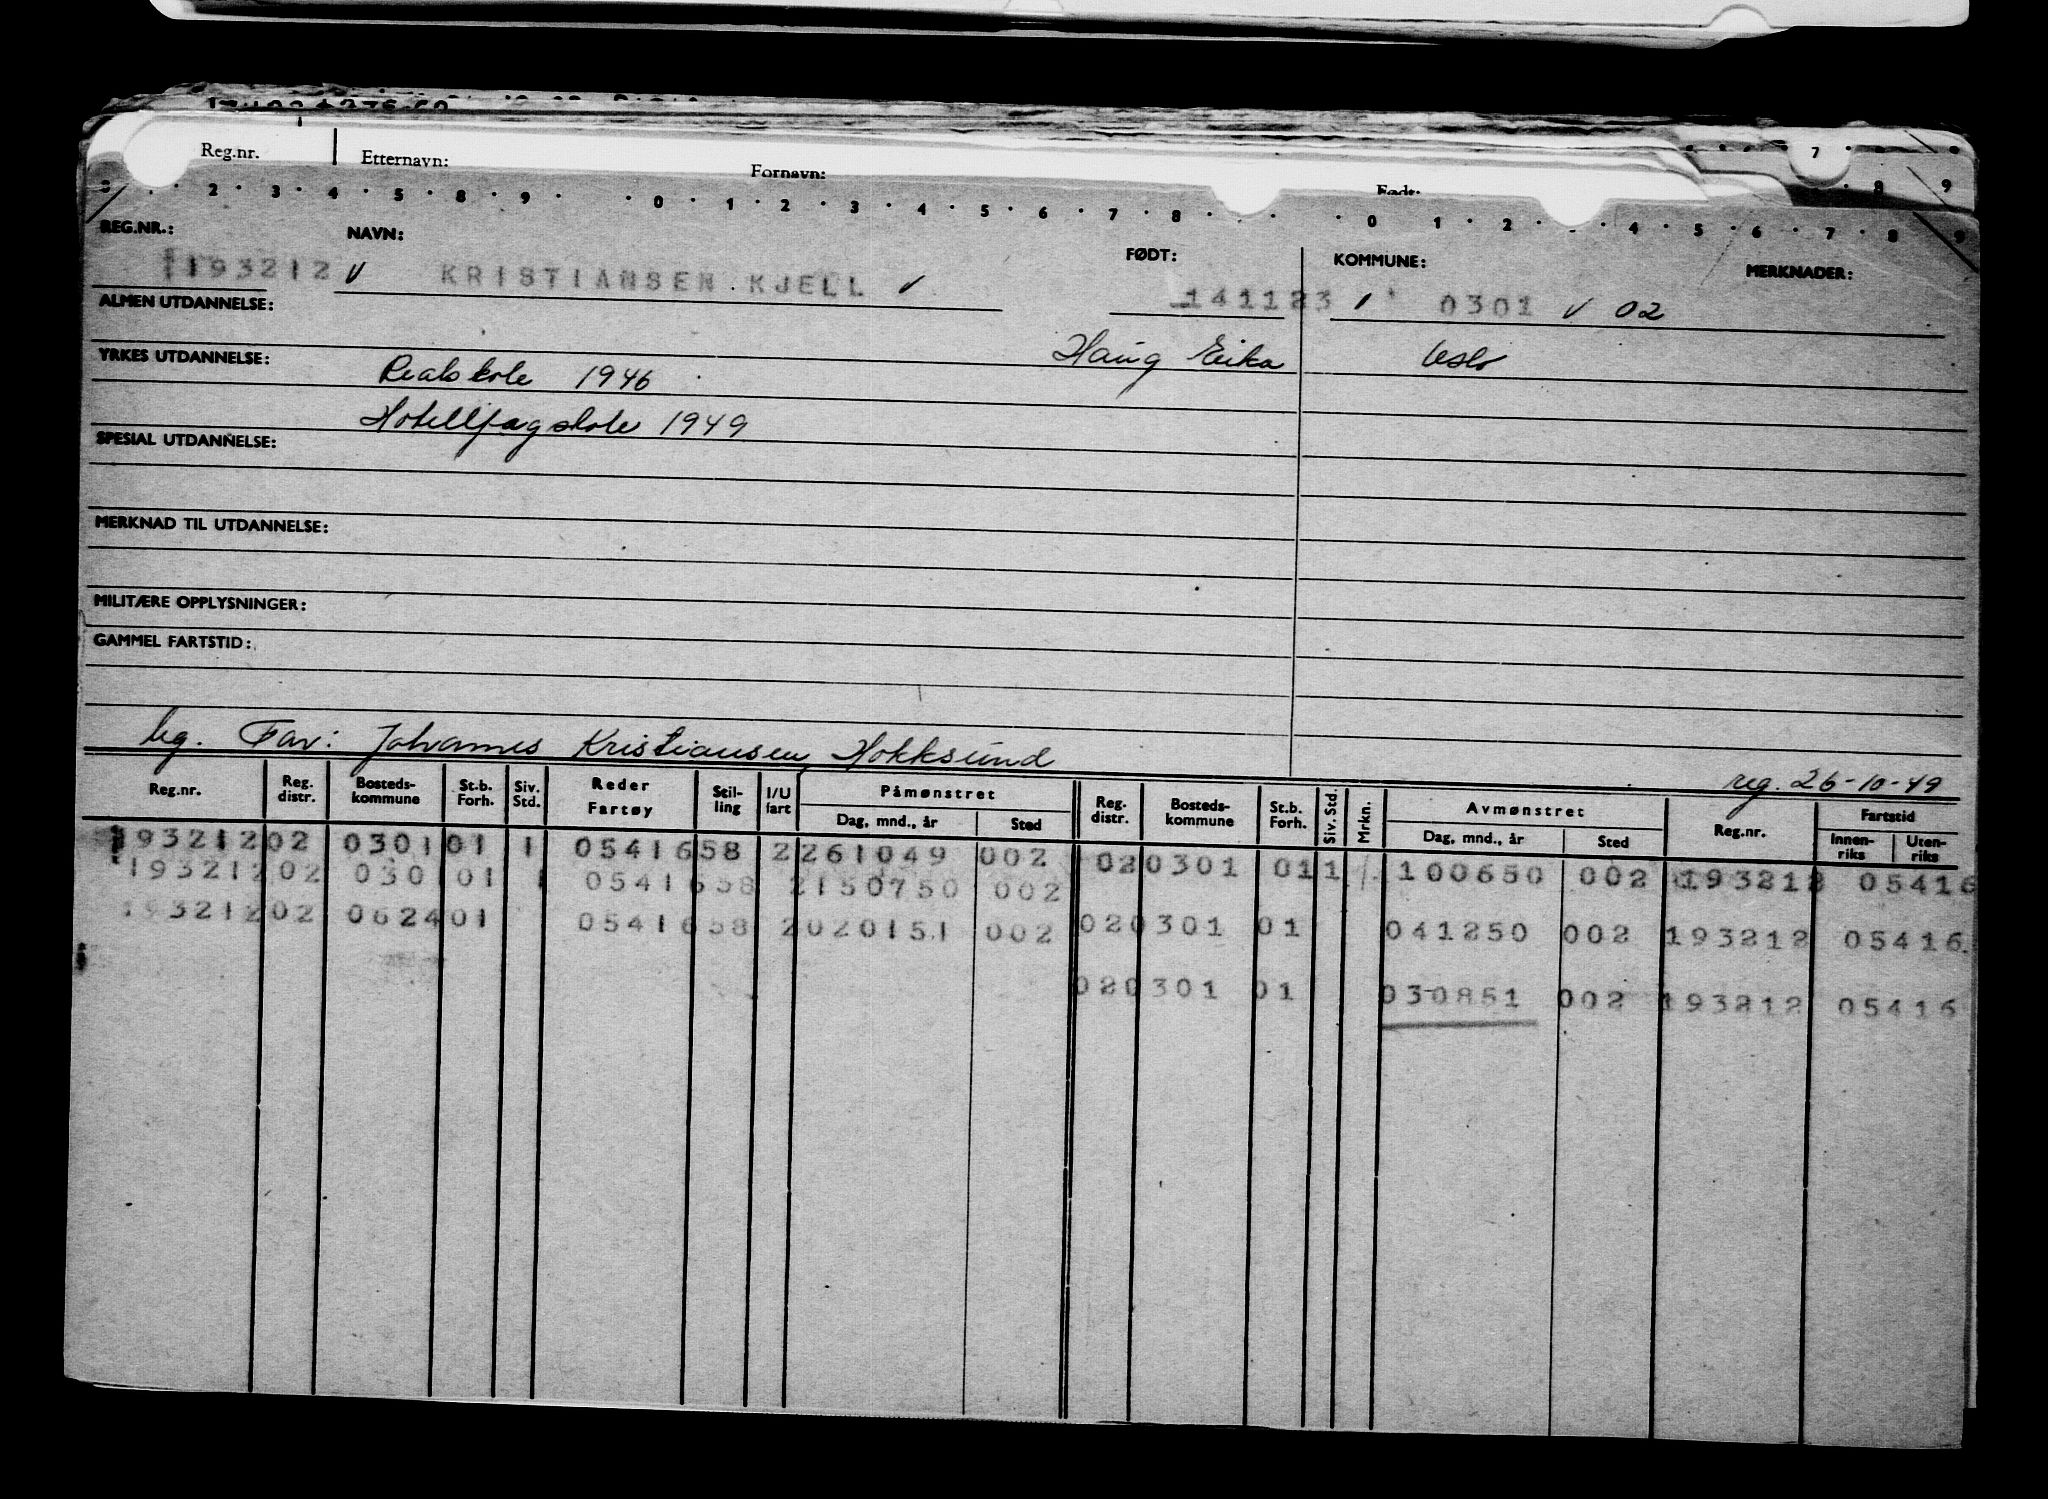 Reg.nr. Etternavn: Fornavn: Født:
7 8 9
2 3 4 5 8 9 0 1 2 3 4 5 6 7 8 0 1 2 4 5 6 7 8 9
REG.NR.: NAVN: FØDT: KOMMUNE: MERKNADER:
193212 KRISTIANSEN KJELL 141123 0301 02
ALMEN UTDANNELSE:
YRKES UTDANNELSE: Realskole 1946 Haug Eiker Oslo
Hotellfagskole 1949
SPESIAL UTDANNELSE:
MERKNAD TIL UTDANNELSE:
MILITÆRE OPPLYSNINGER:
GAMMEL FARTSTID:
ug. Far: Johannes Kristiansen, Hokksund
reg. 26-10-49
Reg.nr. Reg. distr. Bosteds-kommune St.b. Forh. Siv. Std. Reder Fartøy Stil-ling I/U fart Påmønstret Dag, mnd., år Sted Reg. distr. Bosteds-kommune St.b. Forh. Siv. Std. Mrkn. Avmønstret Dag, mnd., år Sted Reg.nr. Fartstid Innen-riks Uten-riks
193212 02 0301 01 1 05416 58 2 261049 002 02 0301 01 1 100650 002 193212 05416
193212 02 0301 01 1 05416 58 2 150750 002
193212 02 0624 01 05416 58 2 020151 002 02 0301 01 041250 002 193212 05416
02 0301 01 030851 002 193212 05416